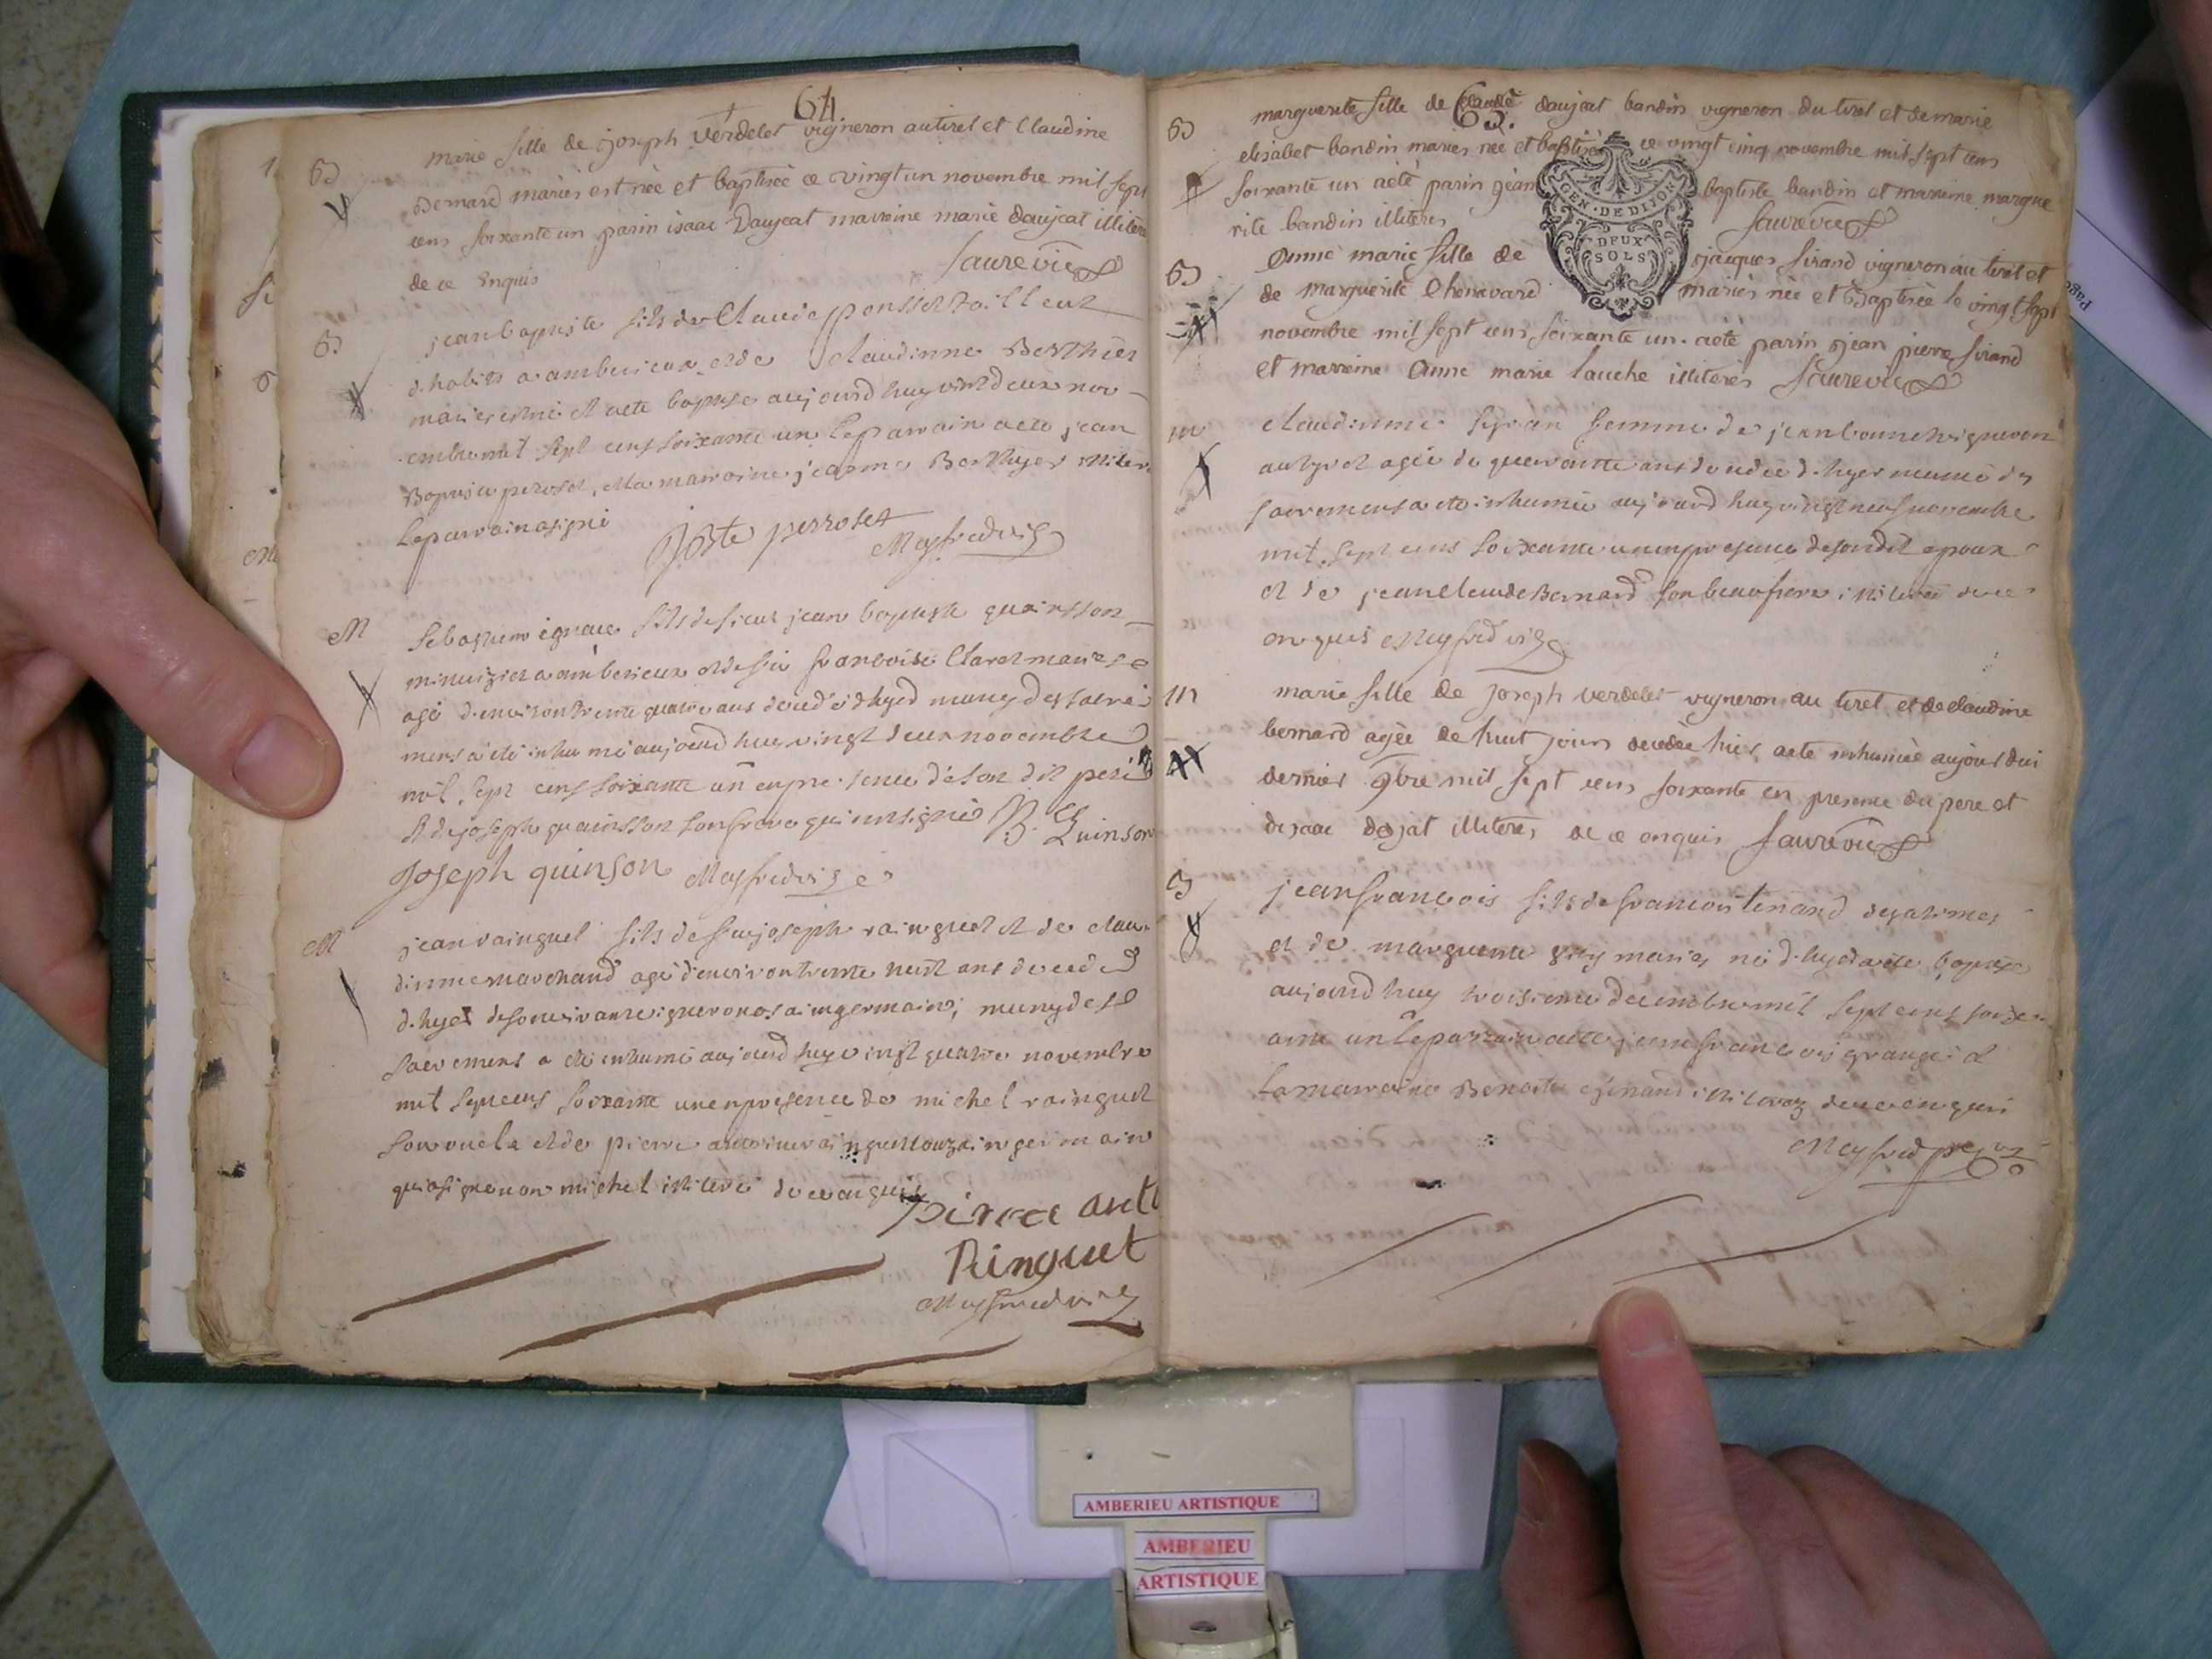 64
B marie fille de joseph verdelet vigneron au tiret et Claudine
Bernard mariés est née et baptisée ce vingt un novembre mil sept
cens soixante un parin isaac Daujeat marreine marie daujeat illiteré
de ce Enquis faure vic
B jean baptiste fils de Claude ponsset tailleur
d'habits a amberieux et de Claudinne Berthier
mariés est né et a eté baptisé aujourd huy vint deux nov-
embre mil sept cens soixante un le parrain a eté jean
Baptiste peroset, et la marraine jeanne Berthyer illiteré
le parrain a signé jbste perroset
Meyfred vic
M Sebastien ignace fils de sieur jean baptiste quainsson
minuizier a amberieux et de feu franboise Claret mariés
agé d'environ trente quatre ans decedé d'hyer muny des sacre
mens a eté inhumé aujourd huy vingt deux novembre
mil sept cens soixante un en presence de son dit pere
et de joseph quainsson son frere qui ont signé B. Quinson
Joseph quinson Meyfred vic
M jean rainguet fils de feu joseph rainguet et de clau
dinne marchand agé d'environ trente huit ans decedé
d'hyer de son vivant vigneron a saingermain, muny des
sacremens a eté inhumé aujourd huy vingt quatre novembre
mil sept cens soixante un en presence de michel rainguet
son oncle et de pierre antoine rainguet touz saingermain
qui a signé non michel illiteré de ce enquis
Pierre ant
Ringuet
Meyfred vic
65.
B marguerite fille de claude daujeat bandin vigneron du tiret et de marie
elisabet bandin mariés née et baptisée ce vingt cinq novembre mil sept cens
soixante un aeté parin jean baptiste bandin et marreine margue
rite bandin illiteres faure vic
GEN. DE DIJON
DEUX
SOLS
B Anne marie fille de jacques sirand vigneron au tiret et
de marguerite Chenavard mariés née et Baptisée le vingt sept
novembre mil sept cens soixante un. aeté parin jean pierre sirand
et marreine Anne marie lauche illiteres faure vic
m claudinne femme de jean vigneron
au tyret agée de quarantte ans decedée d'hyer munie des
sacremens a eté inhumée aujourd huy vingt neuf novembre
mil sept cens soixante un en presence de son dit epoux
et de jean claude Bernard son beaufrere illiteré de ce
enquis Meyfred vic
m marie fille de joseph verdelet vigneron au tiret et de claudine
bernard agée de huit jours decedée hier aeté inhumée aujourdui
dernier 9bre mil sept cens soixante en presence du pere et
d'isaac dojat illiteres de ce enquis faure vic
B jean francois fils de francois tenand des
et de marguerite mariés né d'hyer a eté baptisé
aujourd huy troisieme decembre mil sept cens soix
ante un le parrain a eté jean francois et
la marraine Benoite illiteréz de ce enquis
Meyfred
AMBERIEU ARTISTIQUE
AMBERIEU
ARTISTIQUE